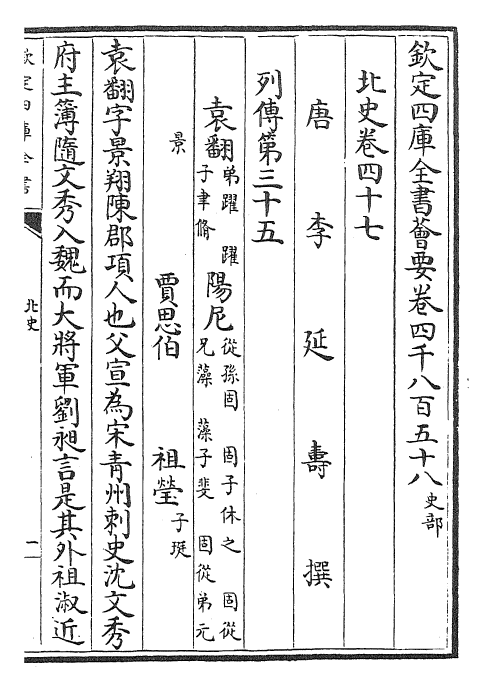 欽定四庫全書薈要卷四千八百五十八 史部
北史卷四十七
唐 李 延 壽 撰
列傳第三十五
袁翻 弟躍 躍子聿脩 陽尼 從孫固 固子休之 固從兄藻 藻子斐 固從弟元
景 賈思伯 祖瑩 子珽
袁翻字景翔陳郡項人也父宣為宋青州刺史沈文秀
府主簿隨文秀入魏而大將軍劉昶言是其外祖淑近
欽定四庫全書
北史
一